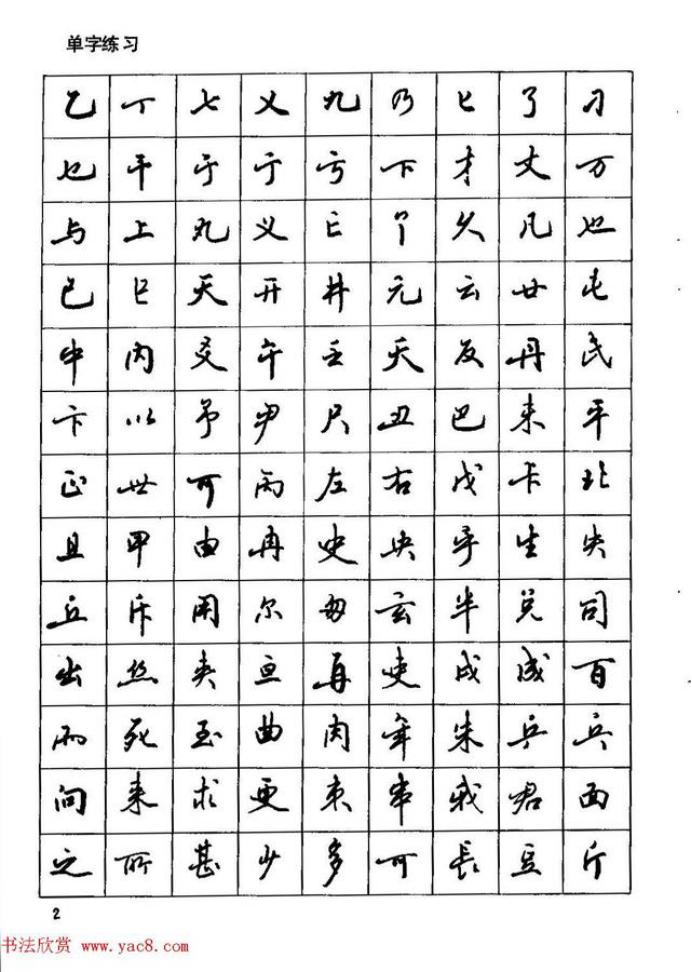 单字练习
乙丁七乂九乃匕了刁
乜干于亍亏下才丈万
与上丸义亡个久凡也
已巳天开井元云廿屯
中内爻午壬夭反丹氏
卞以予尹尺丑巴未平
正世可丙左右戊卡北
且甲由冉史央乎生失
丘斥用尔匆玄半兄司
出丝夹亘再吏成咸百
雨死玉曲肉年朱乒兵
向来求更束串我君面
之所甚少多可長豆斤
2
书法欣赏 www.yac8.com